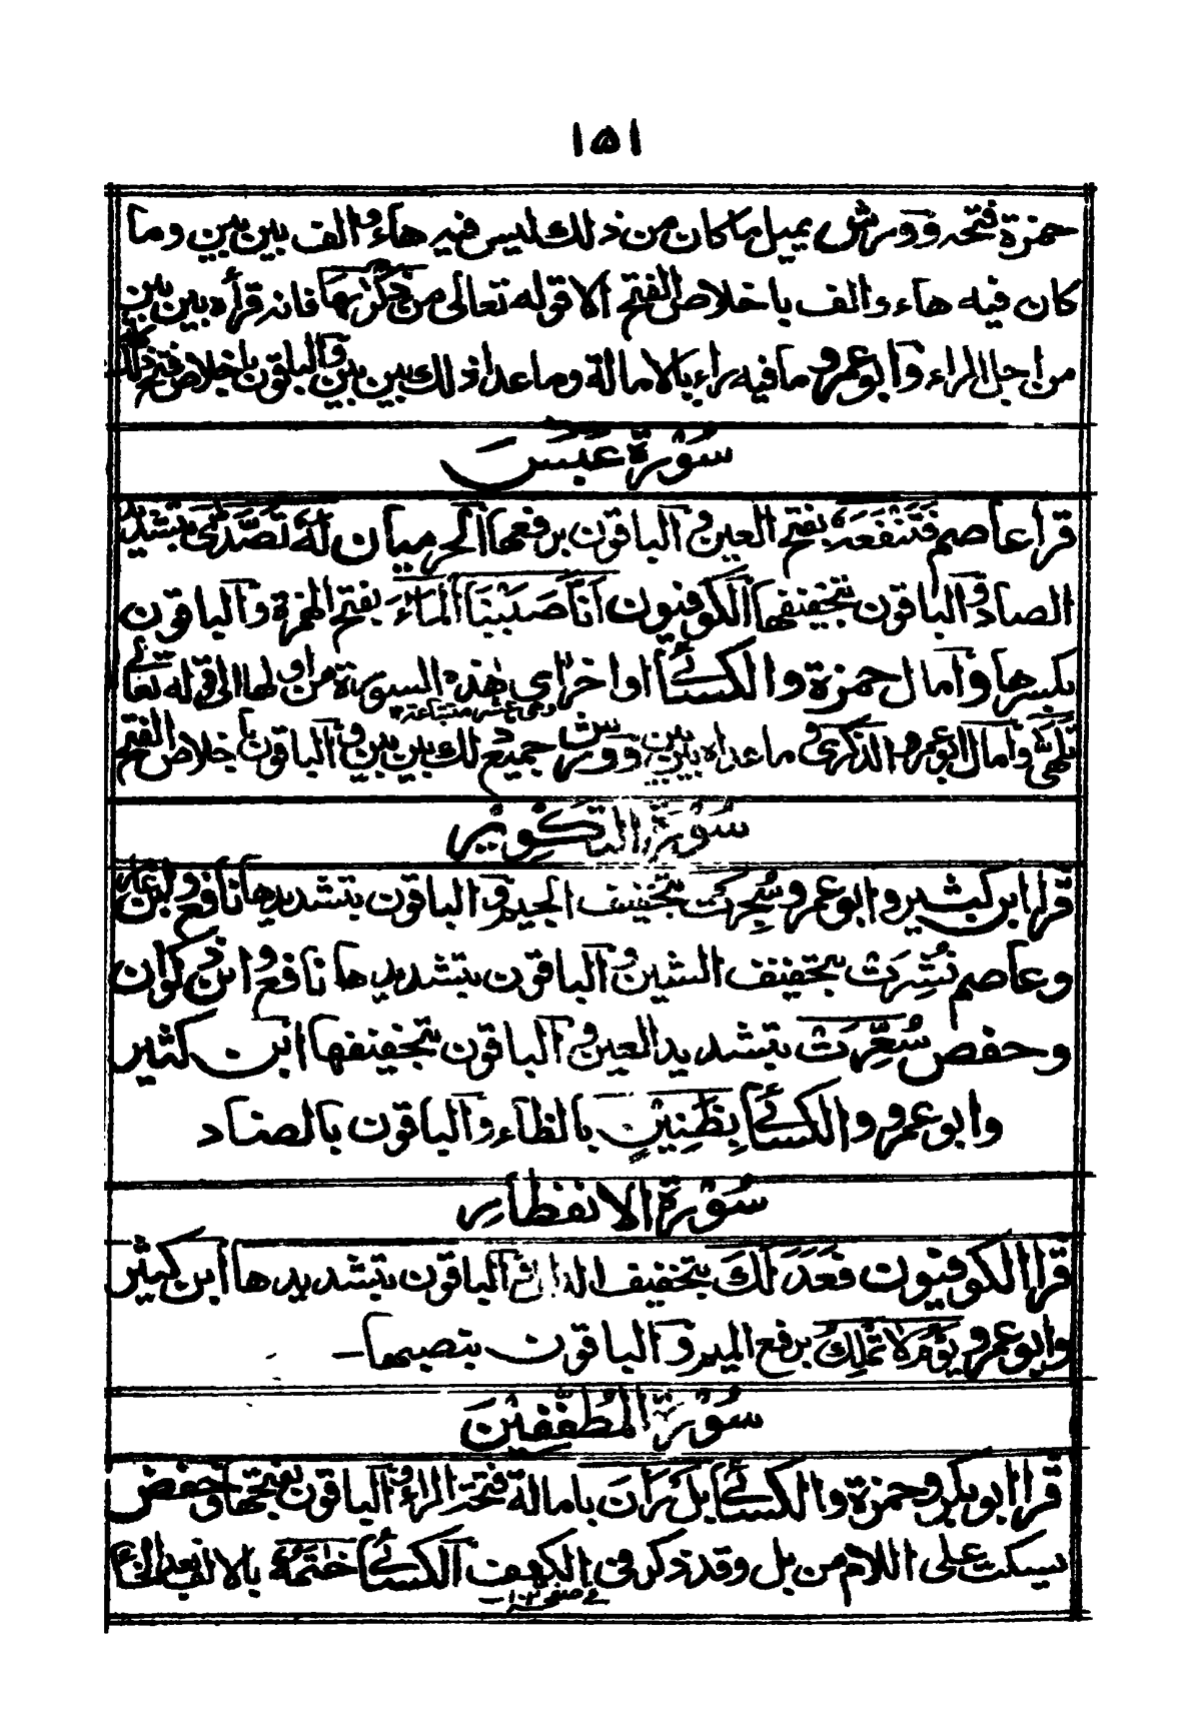 ١٥١
حمزة فتحه وورش يميل ما كان من ذلك ليس فيه هاء والف بين بين وما
كان فيه هاء والف باخلاص الفتح الا قوله تعالى من ذِكْرٰىهَا فانه قرأه بين بين
من اجل الراء وابو عمرو ما فيه راء بالامالة وما عدا ذلك بين بين والباقون باخلاص فتح ذلك كله
سُوْرَةُ عَبَسَ
قرا عاصم فَتَنْفَعَهُ بفتح العين والباقون برفعها الحرميان لَهُ تَصَّدّٰى بتشديد
الصاد والباقون بتخفيفها الكوفيون اَنَّا صَبَبْنَا الْمَاءَ بفتح الهمزة والباقون
بكسرها وامال حمزة والكسائي اواخر اي هٰذه السورة من اولها الى قوله تعالى
تَلَهّٰى وامال ابو عمرو الذكرى وما عداه بين بين وورش جميع ذلك بين بين والباقون باخلاص الفتح
سُوْرَةُ التَكْوِيْر
قرا ابن كثير وابو عمرو سُجِرَتْ بتخفيف الجيم والباقون بتشديدها نافع وابن عامر
وعاصم نُشِرَتْ بتخفيف الشين والباقون بتشديدها نافع وابن ذكوان
وحفص سُعِّرَتْ بتشديد العين والباقون بتخفيفها ابن كثير
وابو عمرو والكسائي بِظَنِيْنٍ بالظاء والباقون بالضاد
سُوْرَةُ الانفطارِ
قرا الكوفيون فَعَدَلَكَ بتخفيف الدال والباقون بتشديدها ابن كثير
وابو عمرو يَوْمُ لَا تَمْلِكُ برفع الميم والباقون بنصبها
سُوْرَةُ الْمُطَفِّفِيْنَ
قرا ابو بكر وحمزة والكسائي بَلْ رَانَ بامالة فتحة الراء والباقون بفتحها وحفص
يسكت على اللام من بل وقد ذكر في الكهف الكسائي خٰتَمُهٗ بالالف بعد الخاء